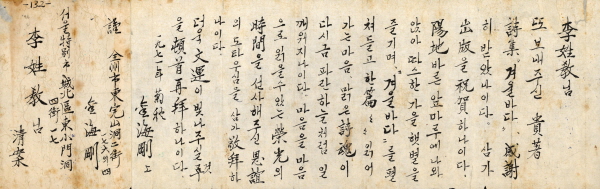 -132-
李姓敎님
또 보내주신 貴著
詩集 겨울바다 感謝
히 받았나이다. 삼가
出版을 祝賀하나이다.
陽地바른 앞마루에 나와
앉아 따스한 가을 햇볕을
즐기며 『겨울바다』를 펼
쳐들고 한篇 〃 읽어
가는 마음. 맑은 詩魂이
다시금 파란 하늘처럼 일
깨워지나이다. 마음
으로 읽을 수 있는 榮光의
時間을 선사해주신 恩誼
의 도타우심을 삼가 敬拜하
나이다.
더욱 文運이 빛나주실 것
을 頓首再拜하나이다.
一九七一年 菊秋
金海剛 上
謹 全州市 東完山洞 二街
七六의 四
金海剛
서울特別市 城北區 東小門洞
四街 一七
李姓敎 님 淸案